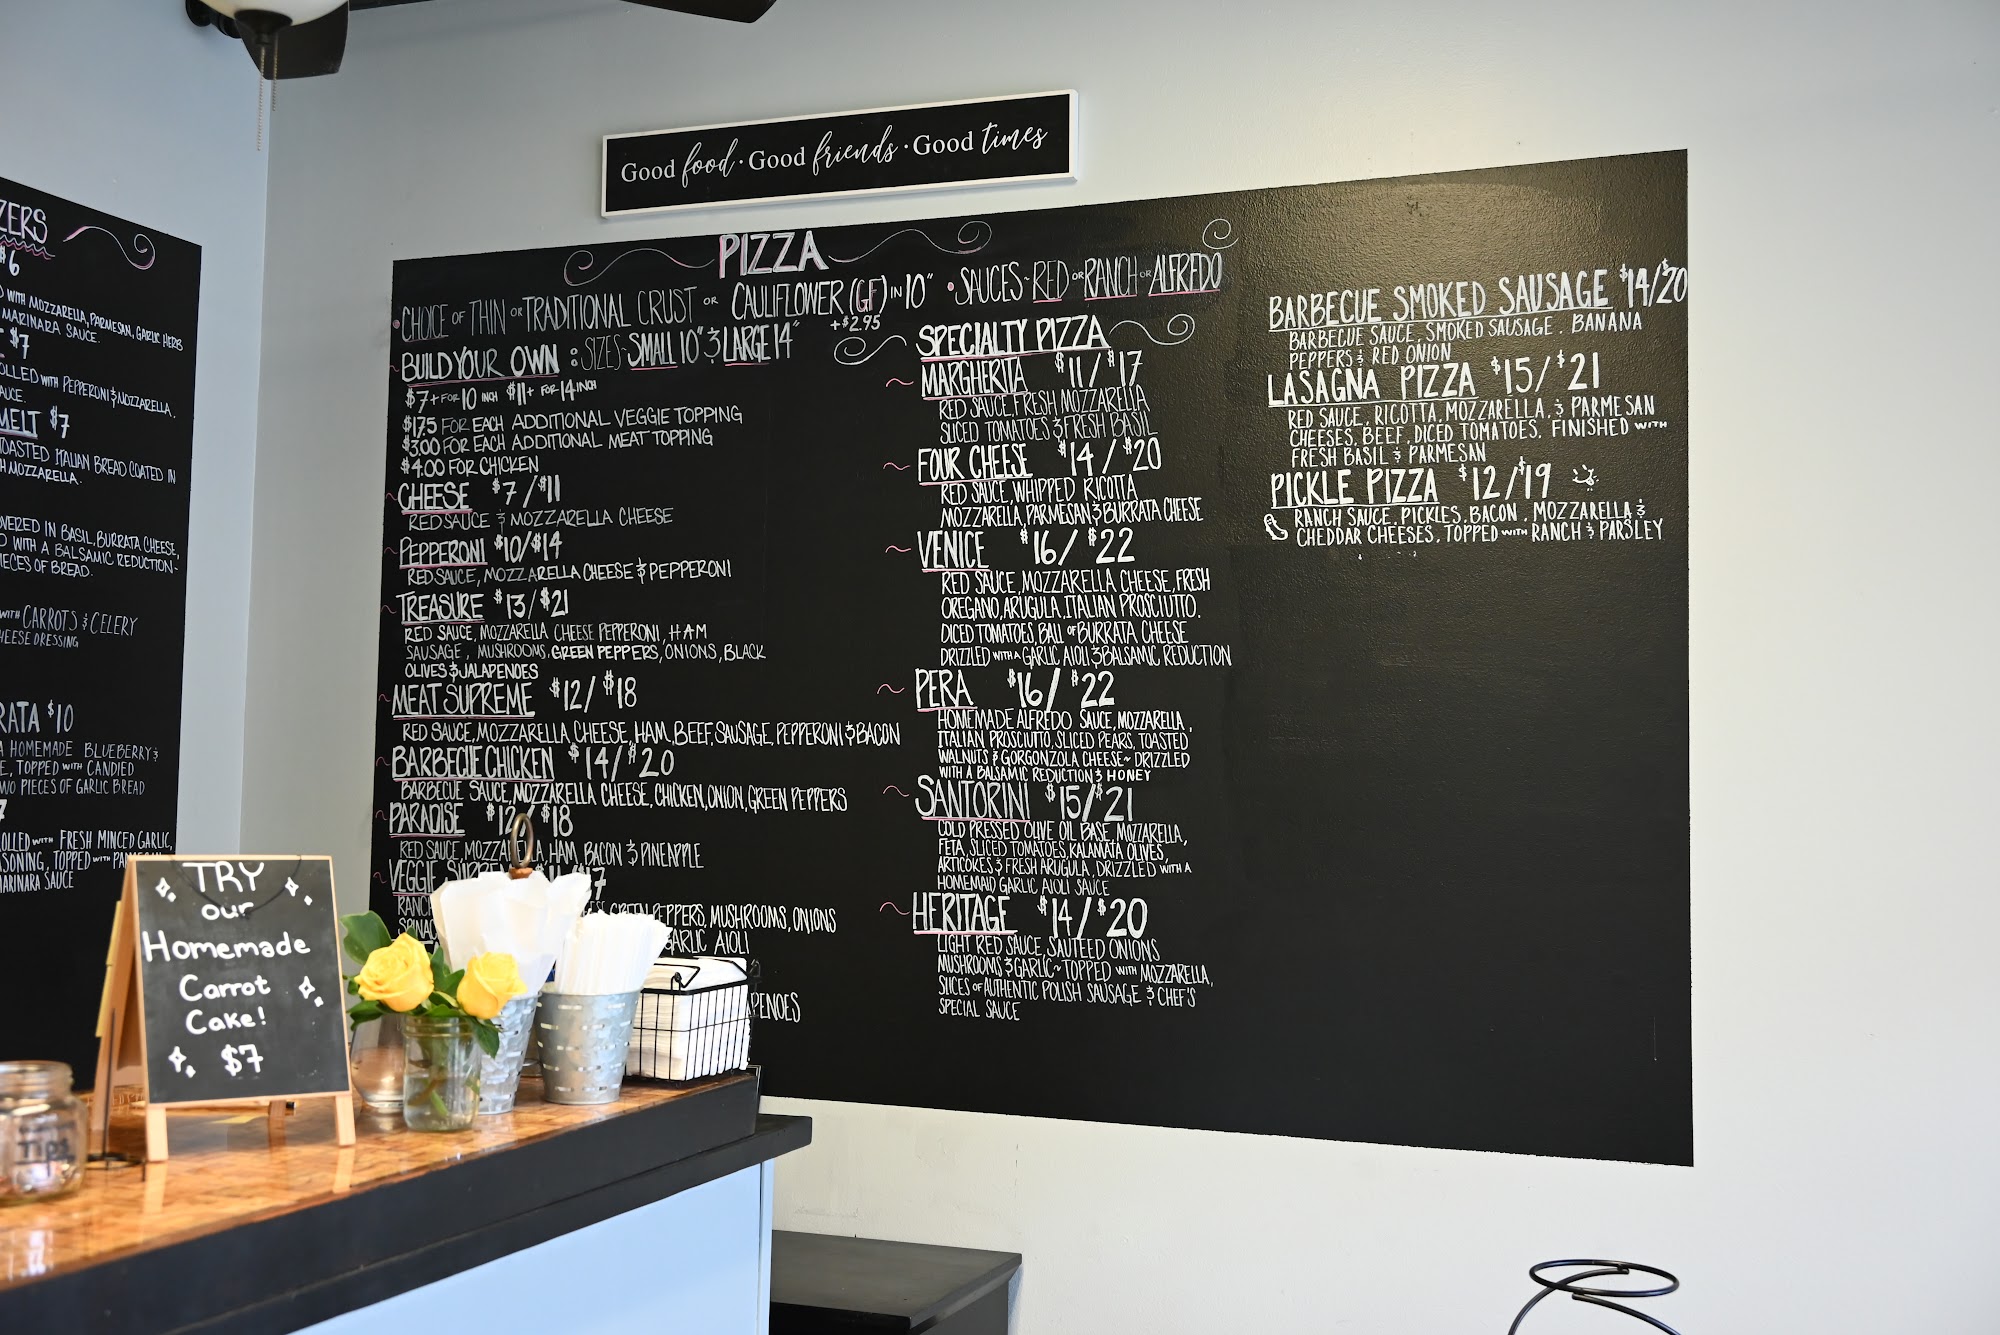 Good food · Good friends · Good times
ZERS
$6
WITH MOZZARELLA, PARMESAN, GARLIC HERB
MARINARA SAUCE.
$7
OLLED WITH PEPPERONI & MOZZARELLA.
AUCE.
MELT $7
OASTED ITALIAN BREAD COATED IN
H MOZZARELLA.
OVERED IN BASIL, BURRATA CHEESE,
D WITH A BALSAMIC REDUCTION-
IECES OF BREAD.
WITH CARROTS & CELERY
HEESE DRESSING
RATA $10
A HOMEMADE BLUEBERRY &
E, TOPPED WITH CANDIED
WO PIECES OF GARLIC BREAD
7
OLLED WITH FRESH MINCED GARLIC,
ASONING, TOPPED WITH PARMESAN
MARINARA SAUCE
PIZZA
• CHOICE OF THIN OR TRADITIONAL CRUST OR CAULIFLOWER (GF) IN 10" • SAUCES~RED OR RANCH OR ALFREDO
+$2.95
~ BUILD YOUR OWN : SIZES~SMALL 10" & LARGE 14"
$7+ FOR 10 INCH $11+ FOR 14 INCH
$1.75 FOR EACH ADDITIONAL VEGGIE TOPPING
$3.00 FOR EACH ADDITIONAL MEAT TOPPING
$4.00 FOR CHICKEN
~ CHEESE $7/$11
RED SAUCE & MOZZARELLA CHEESE
~ PEPPERONI $10/$14
RED SAUCE, MOZZARELLA CHEESE & PEPPERONI
~ TREASURE $13/$21
RED SAUCE, MOZZARELLA CHEESE PEPPERONI, HAM
SAUSAGE, MUSHROOMS, GREEN PEPPERS, ONIONS, BLACK
OLIVES & JALAPENOES
~ MEAT SUPREME $12/$18
RED SAUCE, MOZZARELLA CHEESE, HAM, BEEF, SAUSAGE, PEPPERONI & BACON
~ BARBECUE CHICKEN $14/$20
BARBECUE SAUCE, MOZZARELLA CHEESE, CHICKEN, ONION, GREEN PEPPERS
~ PARADISE $12/$18
RED SAUCE, MOZZARELLA, HAM, BACON & PINEAPPLE
~ VEGGIE SUPREME $11/$17
RANCH GREEN PEPPERS, MUSHROOMS, ONIONS
SPINAC GARLIC AIOLI
APENOES
SPECIALTY PIZZA
~ MARGHERITA $11/$17
RED SAUCE, FRESH MOZZARELLA
SLICED TOMATOES & FRESH BASIL
~ FOUR CHEESE $14/$20
RED SAUCE, WHIPPED RICOTTA
MOZZARELLA, PARMESAN & BURRATA CHEESE
~ VENICE $16/$22
RED SAUCE, MOZZARELLA CHEESE, FRESH
OREGANO, ARUGULA, ITALIAN PROSCIUTTO.
DICED TOMATOES, BALL OF BURRATA CHEESE
DRIZZLED WITH A GARLIC AIOLI & BALSAMIC REDUCTION
~ PERA $16/$22
HOMEMADE ALFREDO SAUCE, MOZZARELLA,
ITALIAN PROSCIUTTO, SLICED PEARS, TOASTED
WALNUTS & GORGONZOLA CHEESE~DRIZZLED
WITH A BALSAMIC REDUCTION & HONEY
~ SANTORINI $15/$21
COLD PRESSED OLIVE OIL BASE, MOZZARELLA,
FETA, SLICED TOMATOES, KALAMATA OLIVES,
ARTICOKES & FRESH ARUGULA, DRIZZLED WITH A
HOMEMAID GARLIC AIOLI SAUCE
~ HERITAGE $14/$20
LIGHT RED SAUCE, SAUTEED ONIONS
MUSHROOMS & GARLIC~TOPPED WITH MOZZARELLA,
SLICES OF AUTHENTIC POLISH SAUSAGE & CHEF'S
SPECIAL SAUCE
BARBECUE SMOKED SAUSAGE $14/$20
BARBECUE SAUCE, SMOKED SAUSAGE. BANANA
PEPPERS & RED ONION
LASAGNA PIZZA $15/$21
RED SAUCE, RICOTTA, MOZZARELLA, & PARMESAN
CHEESES, BEEF, DICED TOMATOES. FINISHED WITH
FRESH BASIL & PARMESAN
PICKLE PIZZA $12/$19
RANCH SAUCE, PICKLES, BACON, MOZZARELLA &
CHEDDAR CHEESES, TOPPED WITH RANCH & PARSLEY
TRY
our
Homemade
Carrot
Cake!
$7
Tips